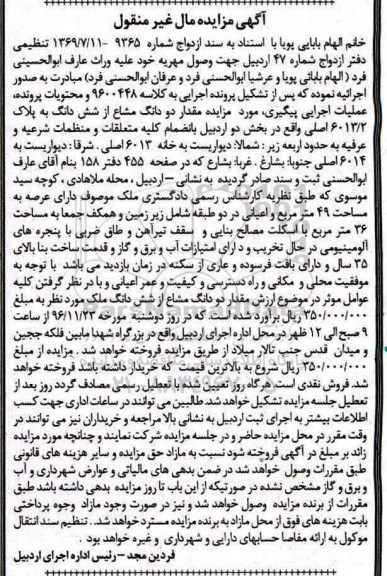 آگهی مزایده مال غیر منقول
خانم الهام بابایی پویا با استناد به سند ازدواج شماره ۹۳۶۵ -۱۳۶۹/۷/۱۱ تنظیمی
دفتر ازدواج شماره ۴۷ اردبیل جهت وصول مهریه خود علیه وراث عارف ابوالحسینی
فرد ( الهام بابائی پویا و عرشیا ابوالحسنی فرد و عرفان ابوالحسنی فرد) مبادرت به صدور
اجرائیه نموده که پس از تشکیل پرونده اجرایی به کلاسه ۹۶۰۰۴۴۸ و محتویات پرونده،
عملیات اجرایی پیگیری، مورد مزایده مقدار دو دانگ مشاع از شش دانگ به پلاک
۶۰۱۳/۲ اصلی واقع در بخش دو اردبیل بانضمام کلیه متعلقات و منظمات شرعیه و
عرفیه به حدود اربعه زیر : شمالا: دیواریست به خانه ۶۰۱۳ اصلی . شرقا : دیواریست به
۶۰۱۴ اصلی جنوبا: بشارع . غربا: بشارع که در صفحه ۴۵۵ دفتر ۱۵۸ بنام آقای عارف
ابوالحسنی ثبت و سند صادر گردیده به نشانی – اردبیل ، محله ملاهادی ، کوچه سید
موسوی که طبق نظریه کارشناس رسمی دادگستری ملک موصوف دارای عرصه به
مساحت ۴۹ متر مربع و اعیانی در دو طبقه شامل زیر زمین و همکف جمعا به مساحت
۳۶ متر مربع با اسکلت مصالح بنایی و سقف تیرآهن و طاق ضربی با پنجره های
آلومینیومی در حال تخریب و دارای امتیازات آب و برق و گاز و قدمت ساخت بنا بالای
۳۵ سال و دارای بافت فرسوده و عاری از سکنه در زمان بازدید می باشد با توجه به
موقعیت محلی و مکانی و راه دسترسی و کیفیت و عمر اعیانی و با در نظر گرفتن کلیه
عوامل موثر در موضوع ارزش مقدار دو دانگ مشاع از شش دانگ ملک مورد نظر به مبلغ
۳۵۰/۰۰۰/۰۰۰ ریال برآورد شده است. که در روز دوشنبه مورخه ۹۶/۱۱/۲۳ از ساعت
۹ صبح الی ۱۲ ظهر در محل اداره اجرای اردبیل واقع در بزرگراه شهدا مابین فلکه ججین
و میدان قدس جنب تالار میلاد از طریق مزایده فروخته خواهد شد . مزایده از مبلغ
۳۵۰/۰۰۰/۰۰۰ ریال شروع به بالاترین قیمت که خریدار داشته باشد فروخته خواهد
شد. فروش نقدی است. هر گاه روز تعیین شده با تعطیل رسمی مصادف گردد روز بعد از
تعطیل جلسه مزایده تشکیل خواهد شد. طالبین می توانند در ساعات اداری جهت کسب
اطلاعات بیشتر به اجرای ثبت اردبیل به نشانی بالا مراجعه و خریداران نیز می توانند در
وقت مقرر در محل مزایده حاضر و در جلسه مزایده شرکت نمایند و چنانچه مورد مزایده
زائد بر مبلغ در آگهی فروخته شود نسبت به مازاد حق مزایده و سایر هزینه های قانونی
طبق مقررات وصول خواهد شد. در ضمن بدهی های مالیاتی و عوارض شهرداری و آب
و برق و گاز مشخص نشده در صورتیکه از این باب تا روز مزایده بدهی داشته باشد طبق
مقررات از برنده مزایده وصول خواهد شد و نیز در صورت وجود مازاد وجوه پرداختی
بابت هزینه های فوق از محل مازاد به برنده مزایده مسترد خواهد شد. . تنظیم سند انتقال
موکول به ارائه مفاصا حسابهای دارایی و شهرداری و غیره خواهد بود .
فردین مجد – رئیس اداره اجرای اردبیل